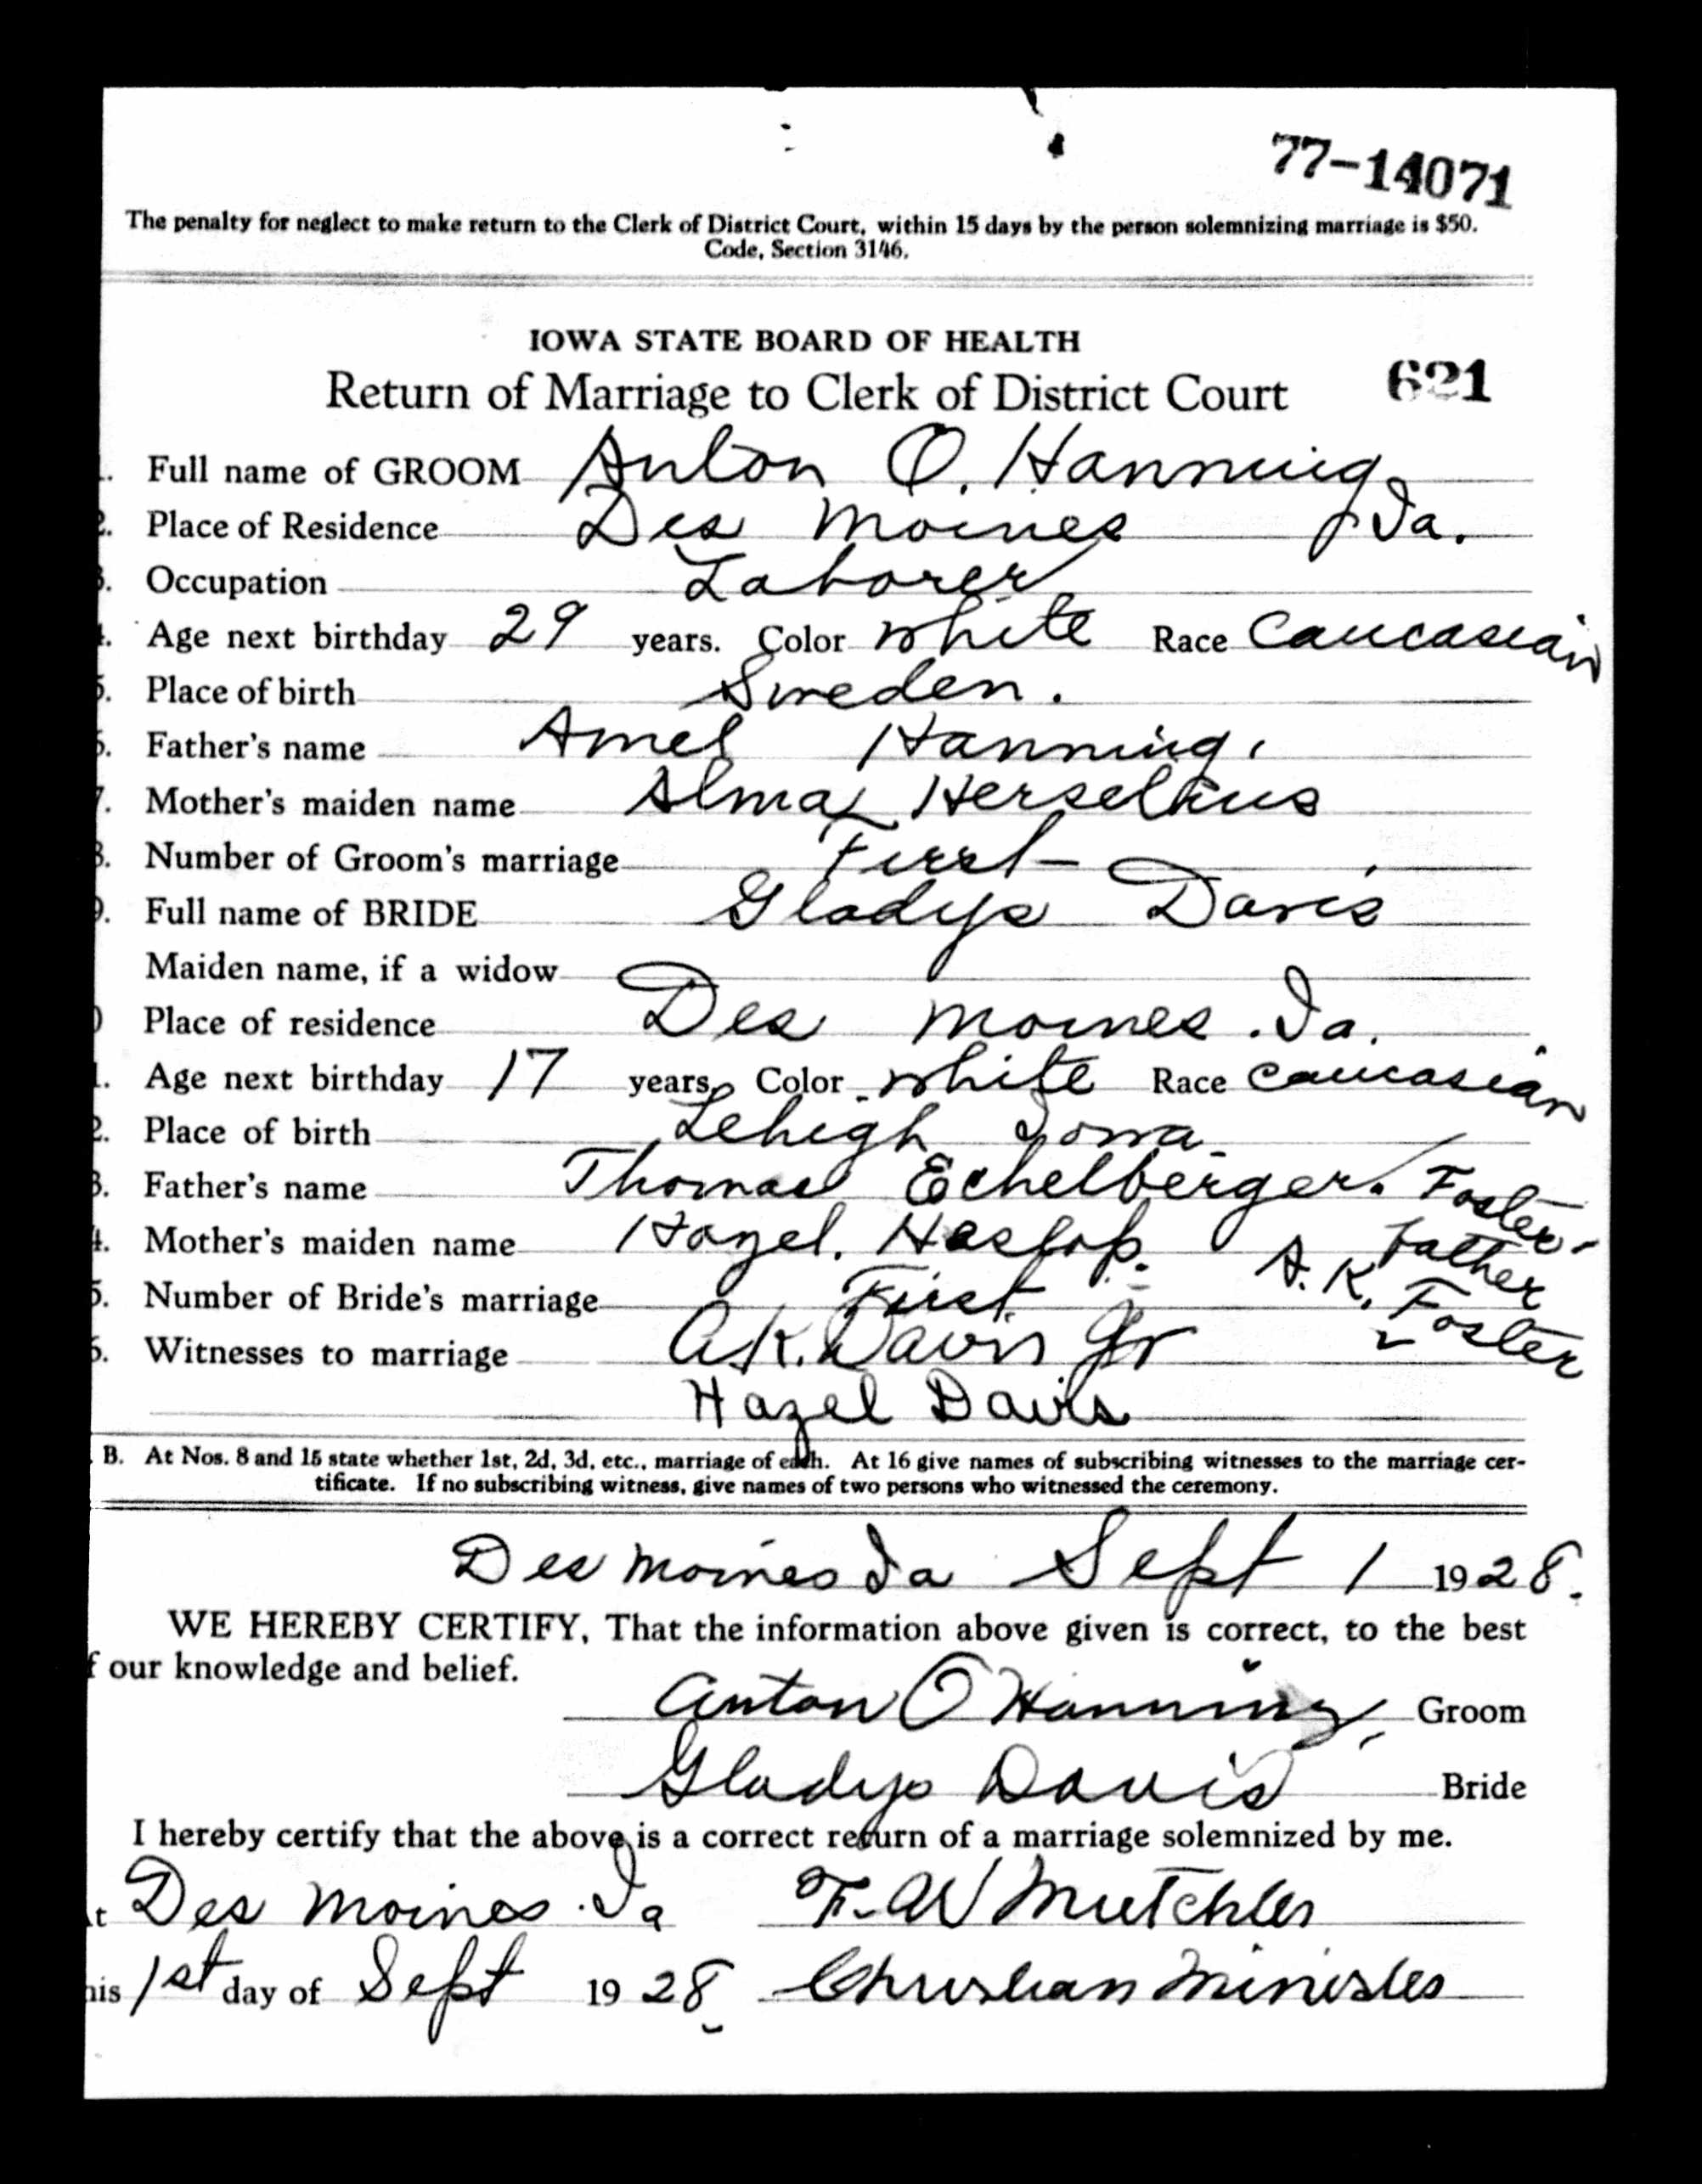 77-14071
The penalty for neglect to make return to the Clerk of District Court, within 15 days by the person solemnizing marriage is $50.
Code, Section 3146.
IOWA STATE BOARD OF HEALTH
Return of Marriage to Clerk of District Court 621
Full name of GROOM Anton O. Hanning
2. Place of Residence Des Moines Ia.
3. Occupation Laborer
4. Age next birthday 29 years. Color White Race Caucasian
5. Place of birth Sweden.
6. Father's name Amel Hanning.
7. Mother's maiden name Alma
8. Number of Groom's marriage First
9. Full name of BRIDE Gladys Davis
Maiden name, if a widow
0 Place of residence Des Moines. Ia.
1. Age next birthday 17 years. Color White Race Caucasian
2. Place of birth Lehigh Iowa
3. Father's name Thomas Echelberger. Foster-
4. Mother's maiden name Hazel. Heslop. Father
5. Number of Bride's marriage First A. K. Foster
6. Witnesses to marriage A.K. Davis Jr
Hazel Davis
B. At Nos. 8 and 15 state whether 1st, 2d, 3d, etc., marriage of each. At 16 give names of subscribing witnesses to the marriage cer-
tificate. If no subscribing witness, give names of two persons who witnessed the ceremony.
Des Moines Ia Sept 1 1928.
WE HEREBY CERTIFY, That the information above given is correct, to the best
f our knowledge and belief.
Anton O Hanning Groom
Gladys Davis Bride
I hereby certify that the above is a correct return of a marriage solemnized by me.
t Des Moines. Ia F. W Mutchler
his 1st day of Sept 1928 Christian Minister